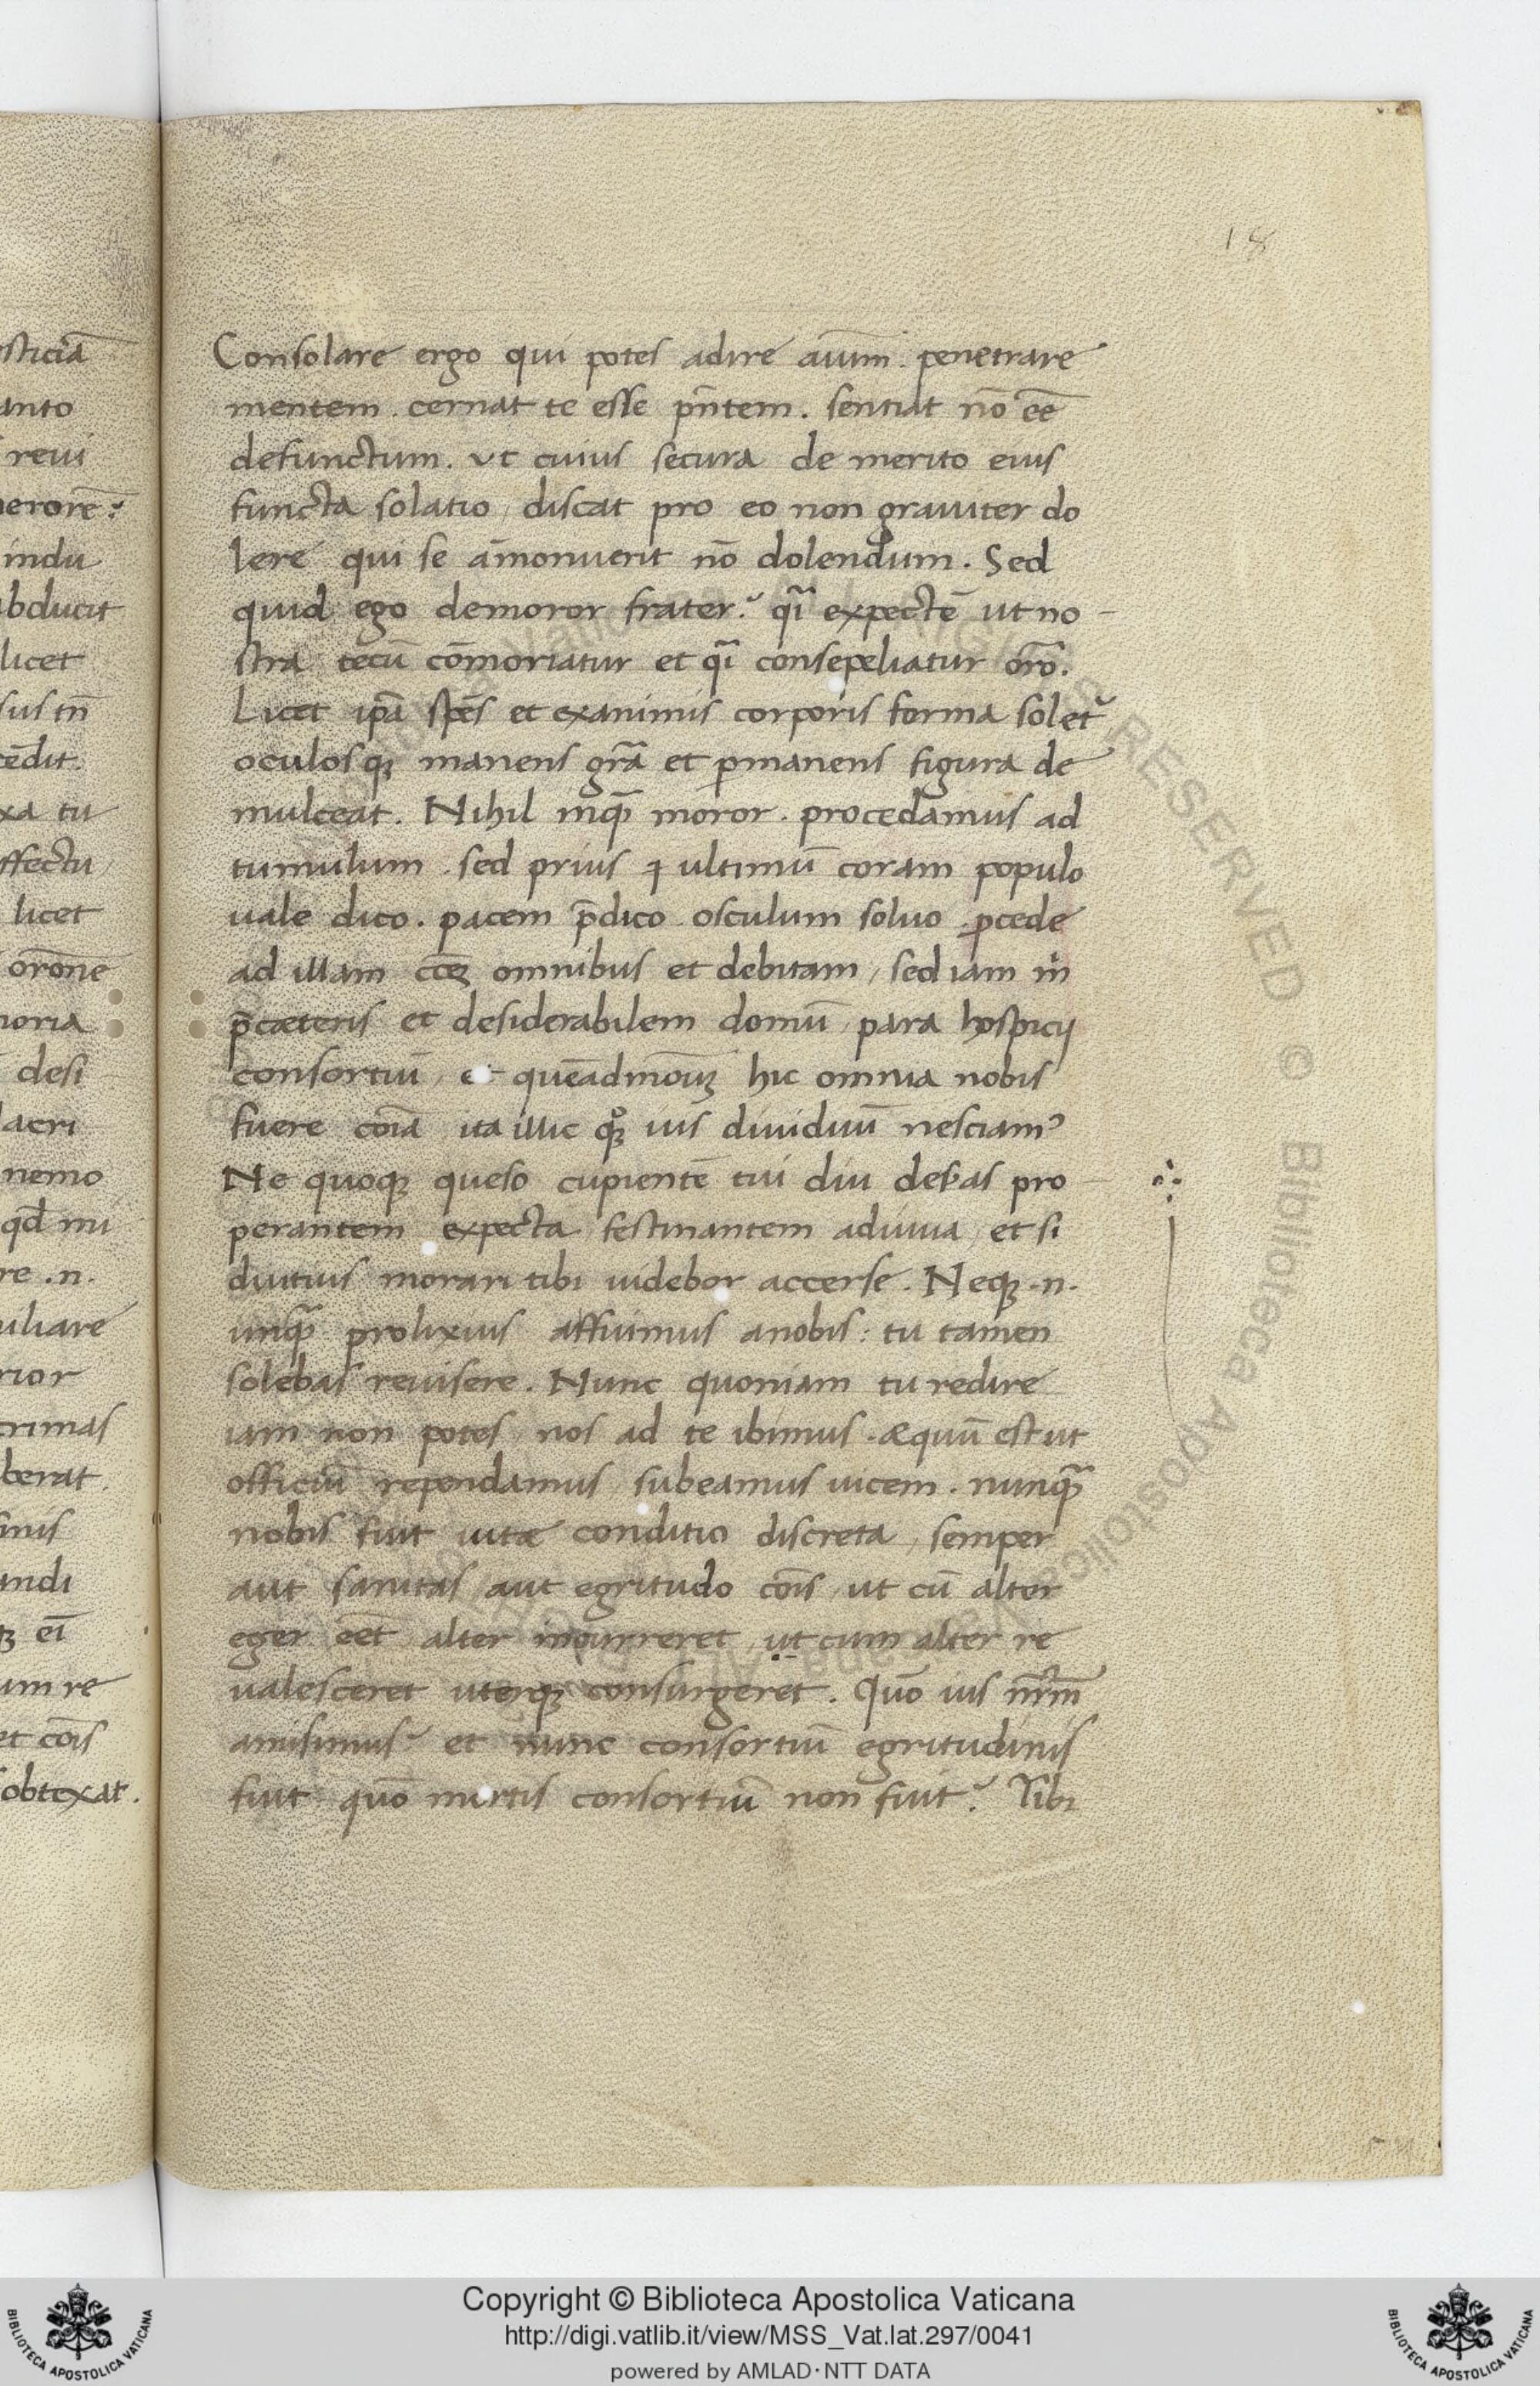 18
sticiā
anto
reui
erorē?
indu
bducit
licet
sus tñ
cēdit.
xa tu
ffectu
licet
orōnē
moria
desi
lacri
nemo
qđ nu
re .n.
iliare
rior
crimas
berat.
inis
andi
ꝫ eī
um re
et cōis
obtexat.
Consolare ergo qui potes adire aīum. penetrare
mentem. cernat te esse pñtem. sentiat nō eē
defunctum. ut cuius secura de merito eius
functa solatio, discat pro eo non grauiter do
lere qui se āmonuerit nō dolendum. Sed
quid ego demoror frater? q̄i expectē ut no-
stra tecū cōmoriatur et q̄i consepeliatur orō.
Licet ip̄a spēs et exanimis corporis forma solet᷑
oculosqꝫ manens gr̄a et ꝑmanens figura de
mulceat. Nihil inq̄ moror. procedamus ad
tumulum. sed prius ꝗ ultimū coram populo
uale dico. pacem p̄dico. osculum soluo. ꝓcede
ad illam cōeꝫ omnibus et debitam, sed iam m̊
p̄cæteris et desiderabilem domū, para hospicij
consortiū, et quēadmōuꝫ hic omnia nobis
fuere cōia, ita illic qͦꝫ ius diuiduū nesciam᾽
Ne quoqꝫ queso cupientē tui diu des̄as pro-
perantem expecta, festinantem adiuua, et si
diutius morari tibi uidebor accerse. Neqꝫ .n.
unq̄ prolixius affuimus anobis: tu tamen
solebas reuisere. Nunc quoniam tu redire
iam non potes, nos ad te ibimus. æquū est ut
officiū rependamus, subeamus uicem. nunq̄
nobis fuit uitæ conditio discreta, semper
aut sanitas, aut egritudo cōis, ut cū alter
eger eēt alter incurreret, ut cum alter re
ualesceret uterqꝫ consurgeret. Quō ius nr̄m
amisimus? et nunc consortiū egritudinis
fuit, quō mortis consortiū non fuit? Tibi
ALL RIGHTS RESERVED © Biblioteca Apostolica Vaticana
Copyright © Biblioteca Apostolica Vaticana
http://digi.vatlib.it/view/MSS_Vat.lat.297/0041
powered by AMLAD·NTT DATA
BIBLIOTECA APOSTOLICA VATICANA
BIBLIOTECA APOSTOLICA VATICANA